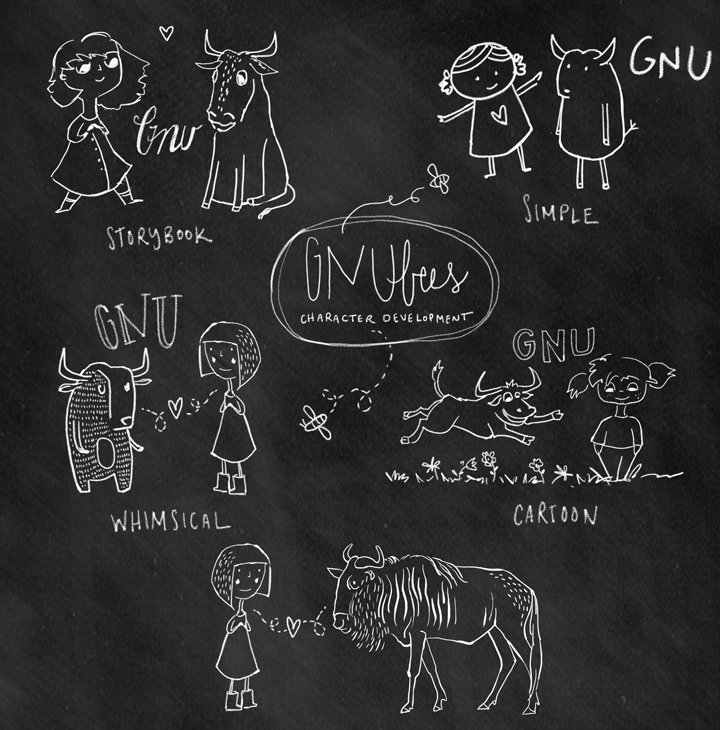 Gnu
STORYBOOK
GNU
SIMPLE
GNUbees
CHARACTER DEVELOPMENT
GNU
WHIMSICAL
GNU
CARTOON